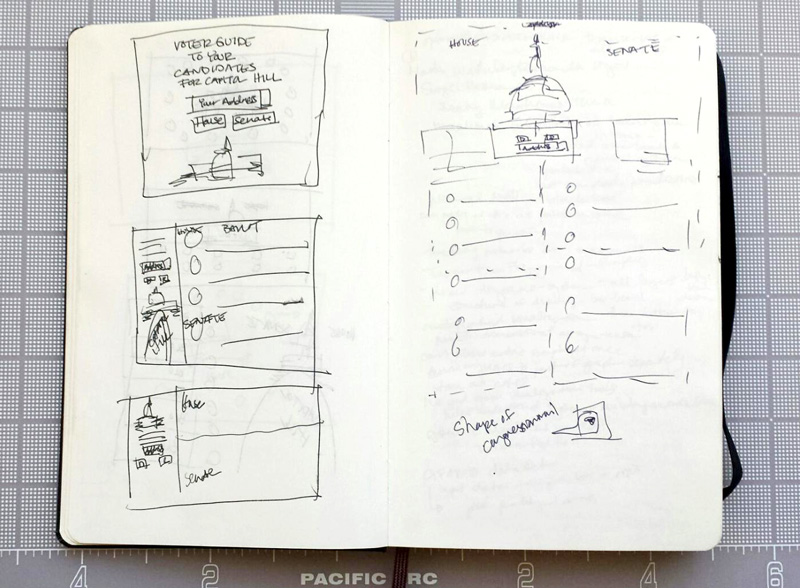 VOTER GUIDE
TO YOUR
CANDIDATES
FOR CAPITOL HILL
Your Address
House Senate
HOUSE BALLOT
SENATE
House
Senate
HOUSE SENATE
Address
Shape of
congressional
4 2 PACIFIC RC 2 4 6